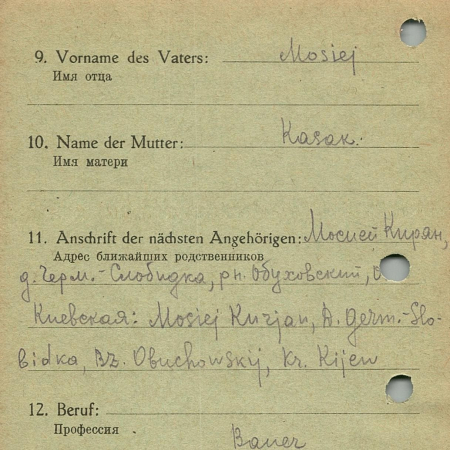 9. Vorname des Vaters: Mosiej
Имя отца
10. Name der Mutter: Kasak.
Имя матери
11. Anschrift der nächsten Angehörigen: Мосией Кирян,
Адрес ближайших родственников
д. Герм.-Слобидка, рн. Обуховский,
Киевская: Mosiej Kirjan, D. Germ.-Slo-
bidka, Bz. Obuchowskij, Kr. Kijew
12. Beruf:
Профессия
Bauer